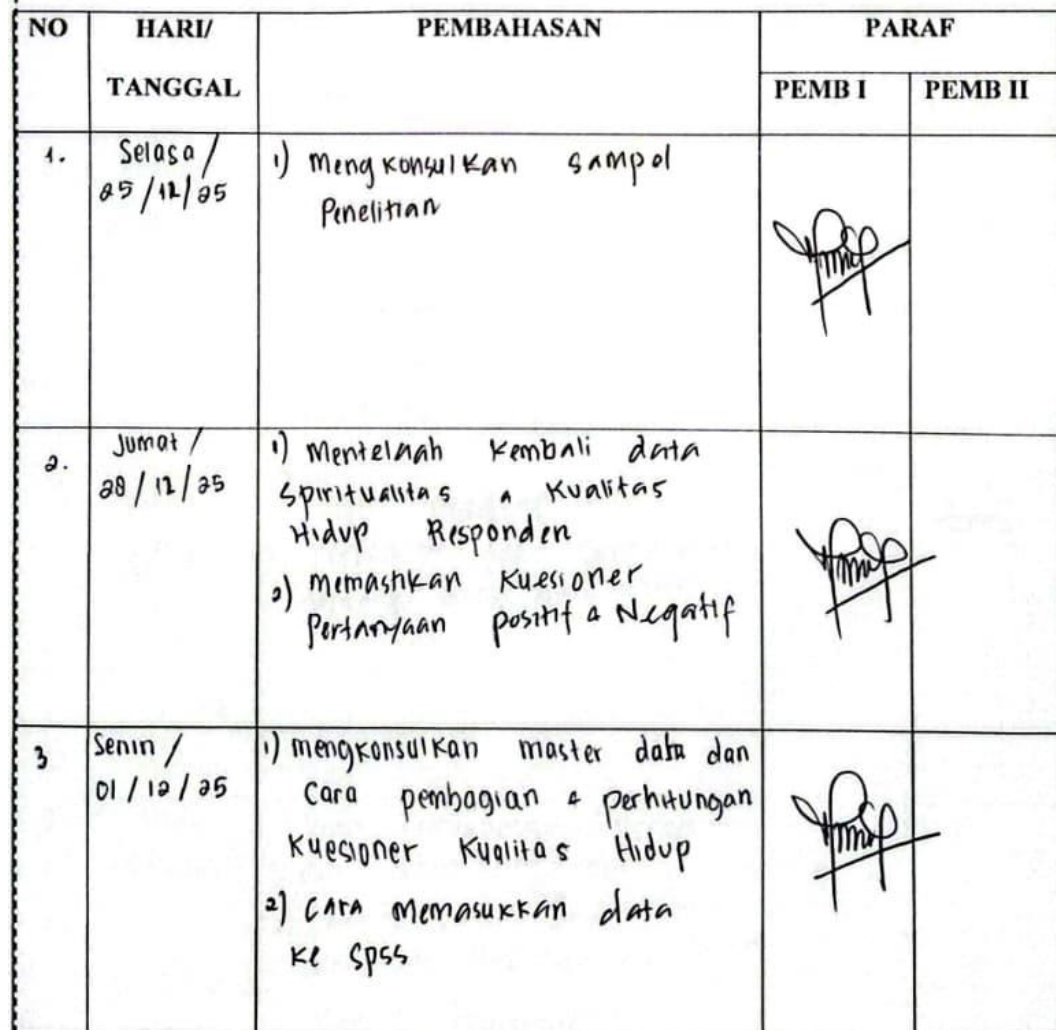 NO HARI/ PEMBAHASAN PARAF
TANGGAL PEMB I PEMB II
1. Selasa / 1) Mengkonsulkan sampel
25/12/25 Penelitian
2. Jumat / 1) Mentelaah Kembali data
28/12/25 Spiritualitas & Kualitas
Hidup Responden
2) Memastikan Kuesioner
Pertanyaan positif & Negatif
3 Senin / 1) mengkonsulkan master data dan
01/12/25 Cara pembagian & perhitungan
Kuesioner Kualitas Hidup
2) Cara Memasukkan data
Ke Spss